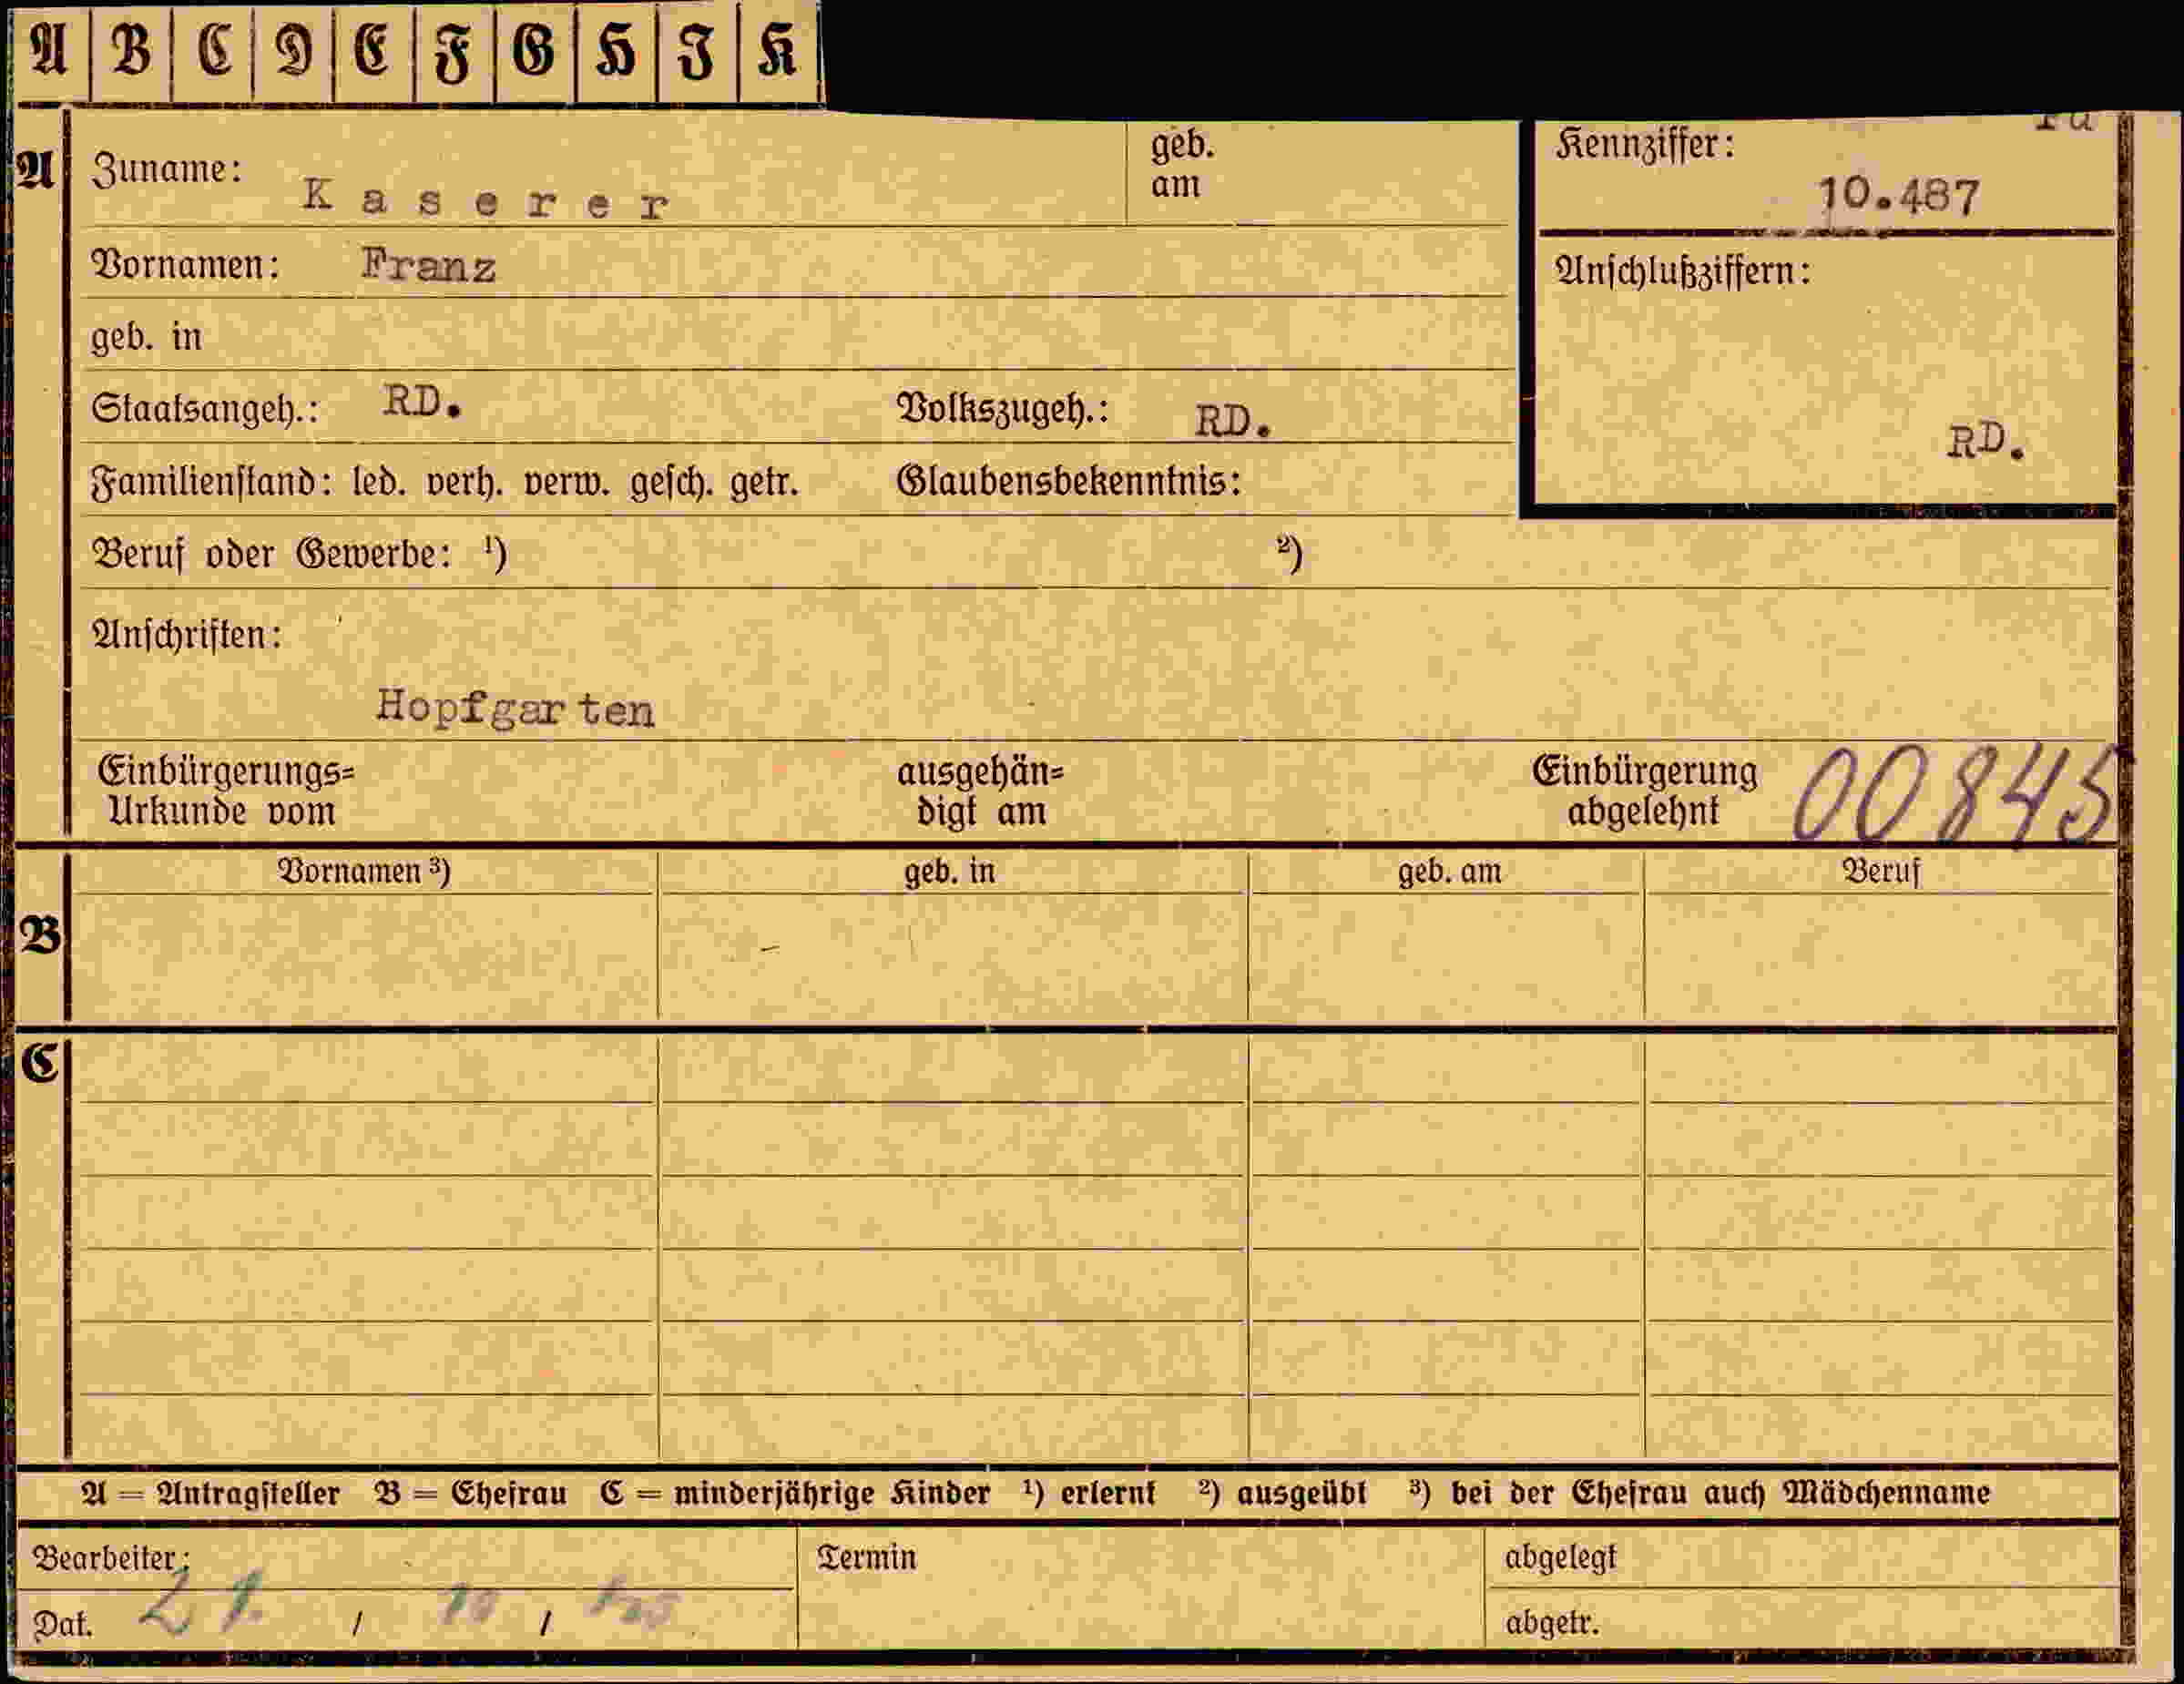 A B C D E F G H I K
A Zuname: Kaserer geb. am
Kennziffer: 10.487
Vornamen: Franz
Anschlußziffern:
geb. in
Staatsangeh.: RD. Volkszugeh.: RD.
RD.
Familienstand: led. verh. verw. gesch. getr. Glaubensbekenntnis:
Beruf oder Gewerbe: ¹) ²)
Anschriften:
Hopfgarten
Einbürgerungs= ausgehän= Einbürgerung 00845
Urkunde vom digt am abgelehnt
Vornamen ³) geb. in geb. am Beruf
B
C
A = Antragsteller B = Ehefrau C = minderjährige Kinder ¹) erlernt ²) ausgeübt ³) bei der Ehefrau auch Mädchenname
Bearbeiter: Termin abgelegt
Dat. / / abgetr.